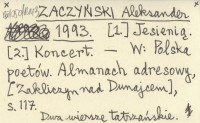 ZACZYŃSKI Aleksander
1993. [1.] Jesienią.
[2.] Koncert. — W: Polska
poetów. Almanach adresowy,
[Zakliczyn nad Dunajcem],
s. 117.
Dwa wiersze tatrzańskie.